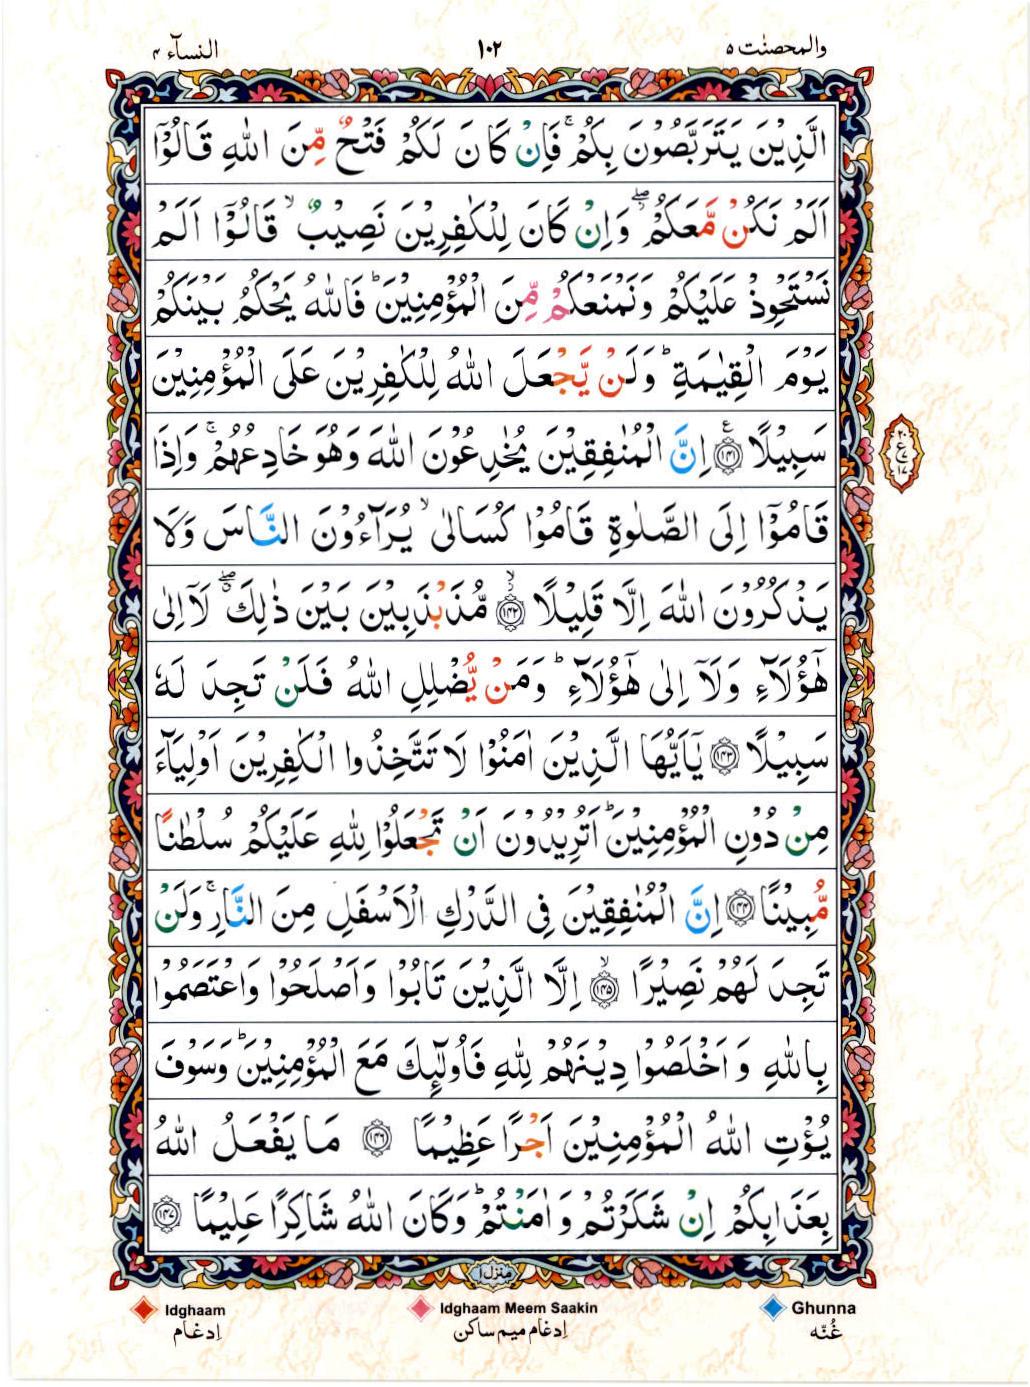 والمحصنٰت ٥
١٠٢
النسآء ٤
الَّذِيْنَ يَتَرَبَّصُوْنَ بِكُمْ ۚ فَاِنْ كَانَ لَكُمْ فَتْحٌ مِّنَ اللّٰهِ قَالُوْۤا
اَلَمْ نَكُنْ مَّعَكُمْ ۖ وَاِنْ كَانَ لِلْكٰفِرِيْنَ نَصِيْبٌ ۙ قَالُوْۤا اَلَمْ
نَسْتَحْوِذْ عَلَيْكُمْ وَنَمْنَعْكُمْ مِّنَ الْمُؤْمِنِيْنَ ؕ فَاللّٰهُ يَحْكُمُ بَيْنَكُمْ
يَوْمَ الْقِيٰمَةِ ؕ وَلَنْ يَّجْعَلَ اللّٰهُ لِلْكٰفِرِيْنَ عَلَى الْمُؤْمِنِيْنَ
سَبِيْلًا ﴿١٤١﴾ اِنَّ الْمُنٰفِقِيْنَ يُخٰدِعُوْنَ اللّٰهَ وَهُوَ خَادِعُهُمْ ۚ وَاِذَا
قَامُوْۤا اِلَى الصَّلٰوةِ قَامُوْا كُسَالٰى ۙ يُرَآءُوْنَ النَّاسَ وَلَا
يَذْكُرُوْنَ اللّٰهَ اِلَّا قَلِيْلًا ﴿١٤٢﴾ مُّذَبْذَبِيْنَ بَيْنَ ذٰلِكَ ۖ لَاۤ اِلٰى
هٰٓؤُلَآءِ وَلَاۤ اِلٰى هٰٓؤُلَآءِ ؕ وَمَنْ يُّضْلِلِ اللّٰهُ فَلَنْ تَجِدَ لَهٗ
سَبِيْلًا ﴿١٤٣﴾ يٰۤاَيُّهَا الَّذِيْنَ اٰمَنُوْا لَا تَتَّخِذُوا الْكٰفِرِيْنَ اَوْلِيَآءَ
مِنْ دُوْنِ الْمُؤْمِنِيْنَ ؕ اَتُرِيْدُوْنَ اَنْ تَجْعَلُوْا لِلّٰهِ عَلَيْكُمْ سُلْطٰنًا
مُّبِيْنًا ﴿١٤٤﴾ اِنَّ الْمُنٰفِقِيْنَ فِى الدَّرْكِ الْاَسْفَلِ مِنَ النَّارِ ۚ وَلَنْ
تَجِدَ لَهُمْ نَصِيْرًا ﴿١٤٥﴾ اِلَّا الَّذِيْنَ تَابُوْا وَاَصْلَحُوْا وَاعْتَصَمُوْا
بِاللّٰهِ وَاَخْلَصُوْا دِيْنَهُمْ لِلّٰهِ فَاُولٰٓئِكَ مَعَ الْمُؤْمِنِيْنَ ؕ وَسَوْفَ
يُؤْتِ اللّٰهُ الْمُؤْمِنِيْنَ اَجْرًا عَظِيْمًا ﴿١٤٦﴾ مَا يَفْعَلُ اللّٰهُ
بِعَذَابِكُمْ اِنْ شَكَرْتُمْ وَاٰمَنْتُمْ ؕ وَكَانَ اللّٰهُ شَاكِرًا عَلِيْمًا ﴿١٤٧﴾
منزل ١
Idghaam
اِدغام
Idghaam Meem Saakin
اِدغام میم ساکن
Ghunna
غُنّه